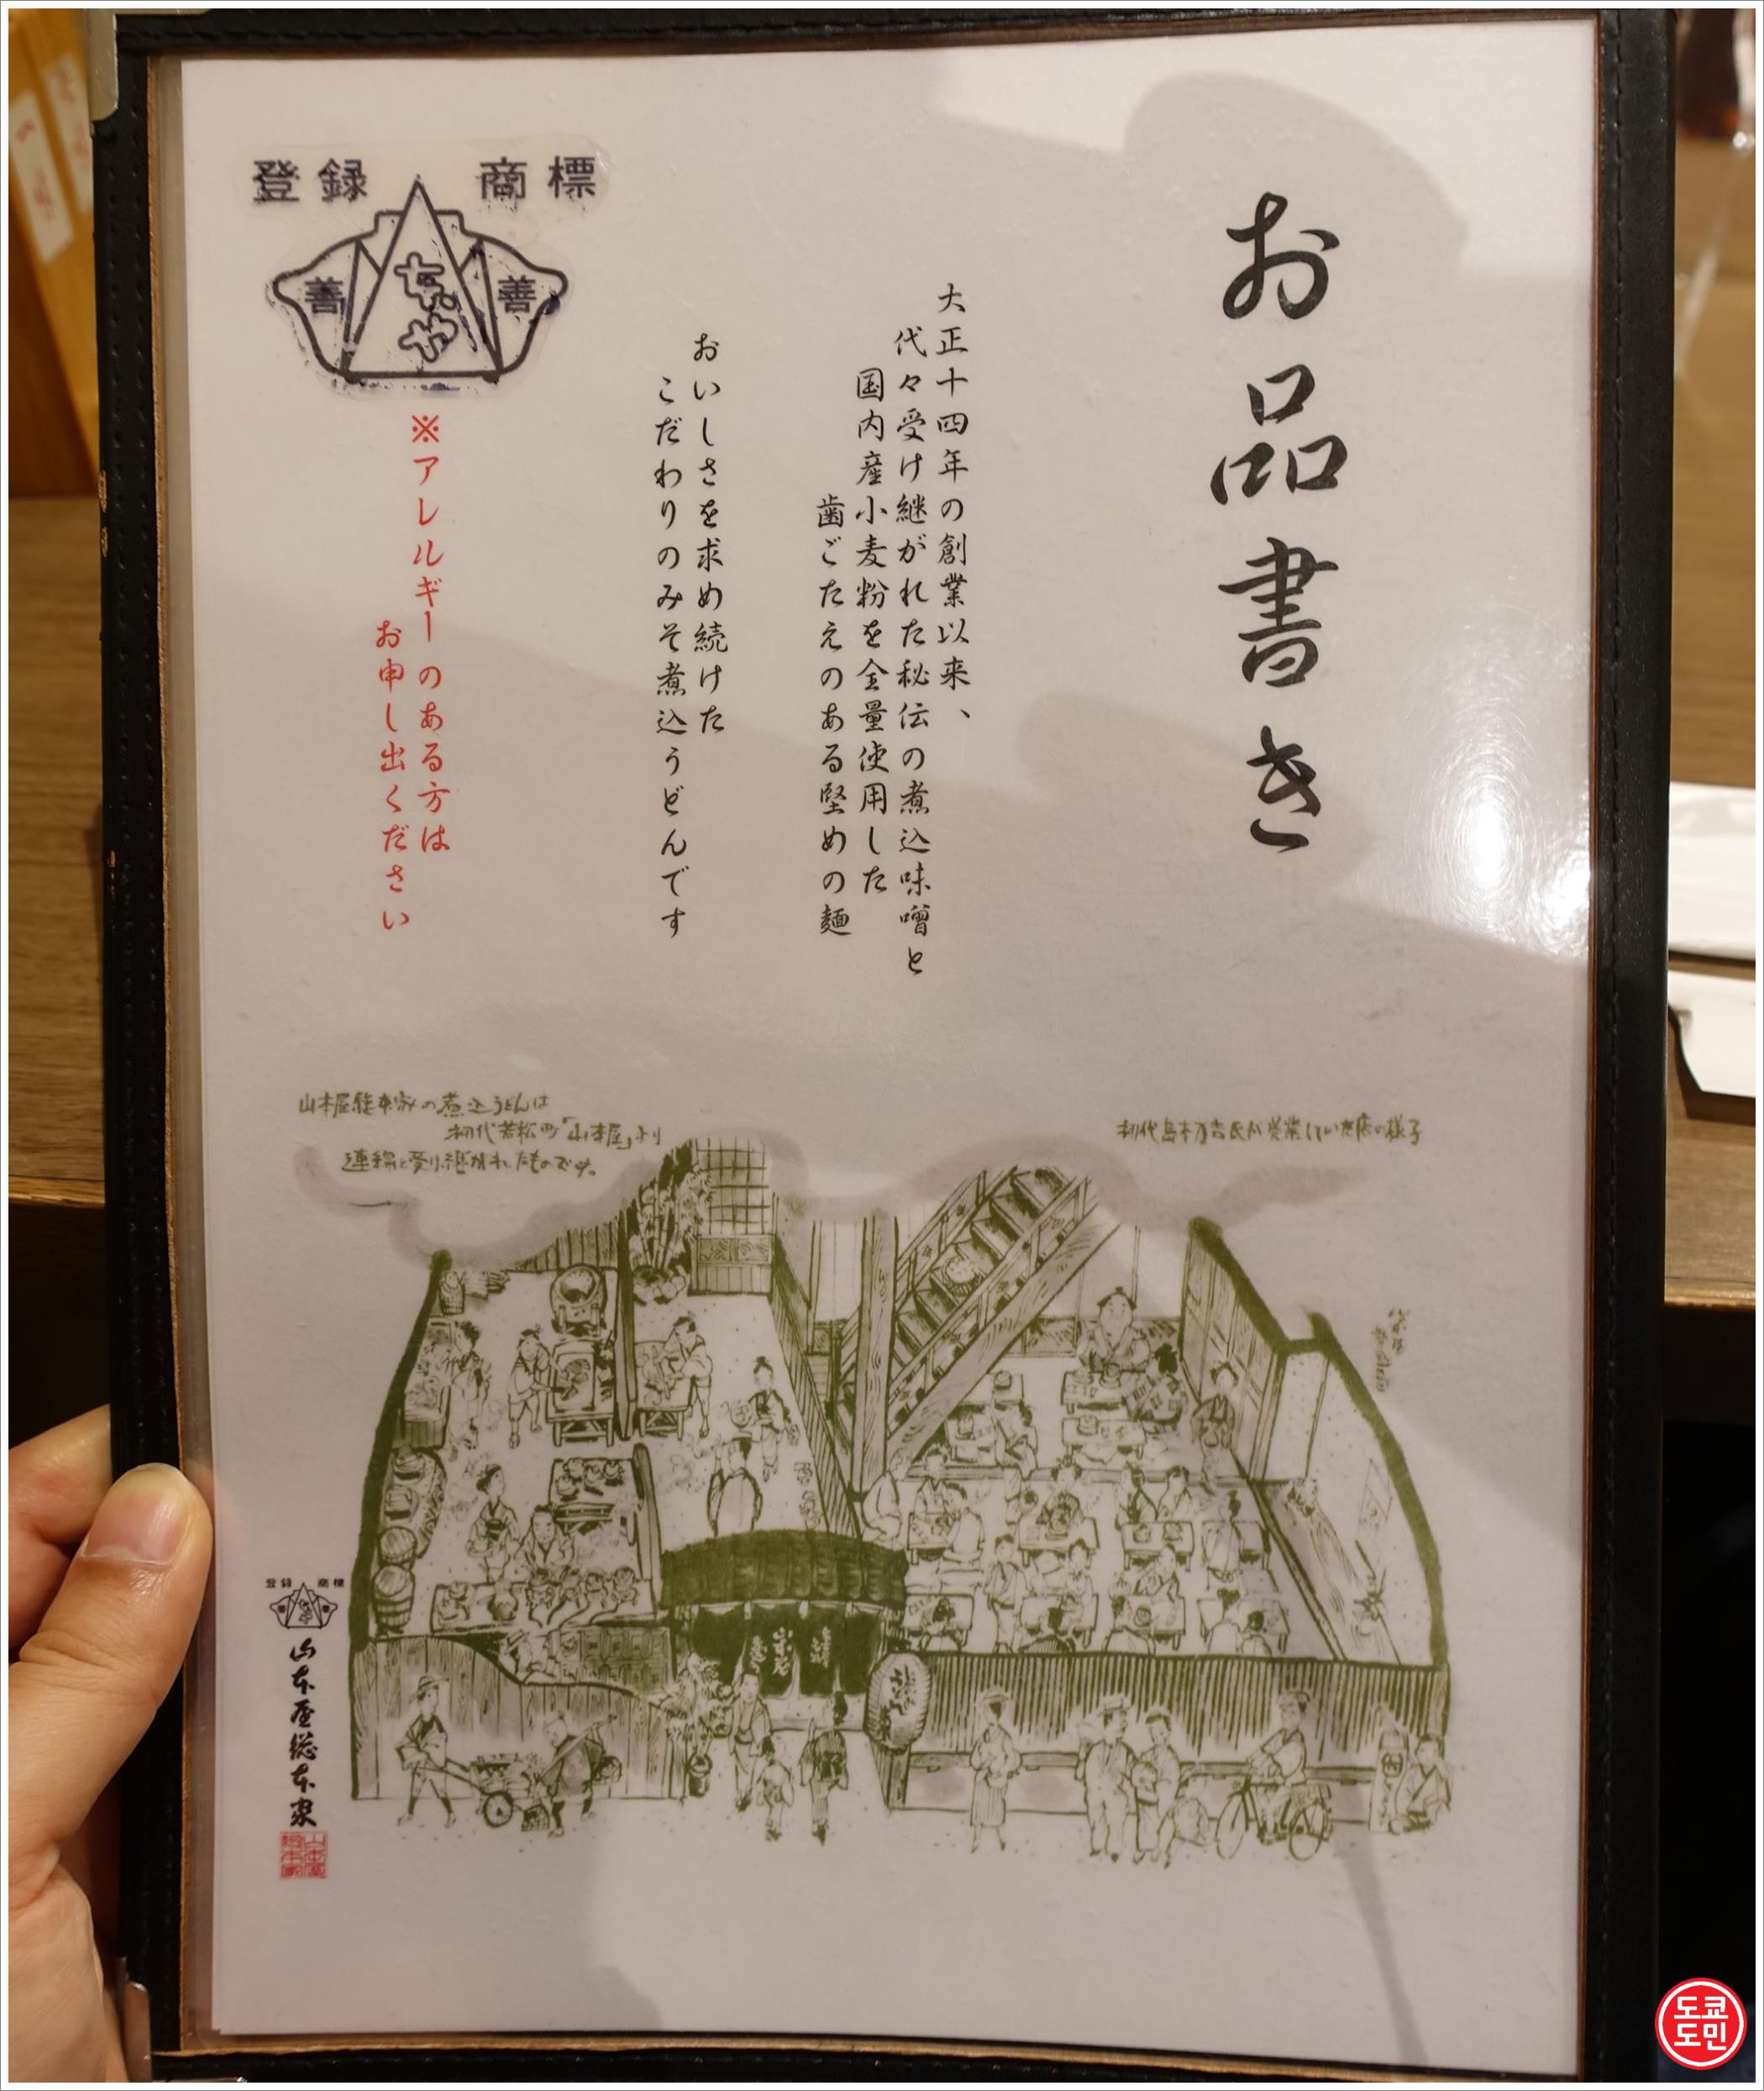 お品書き
大正十四年の創業以来、
代々受け継がれた秘伝の煮込味噌と
国内産小麦粉を全量使用した
歯ごたえのある堅めの麺
おいしさを求め続けた
こだわりのみそ煮込うどんです
登録 商標
善 善
※アレルギーのある方は
お申し出ください
初代島本万吉氏が営業していた店の様子
山本屋総本家の煮込うどんは
初代若松町「山本屋」より
連綿と受け継がれたものです。
登録 商標
山本屋総本家
山本屋
総本家
도쿄
도민